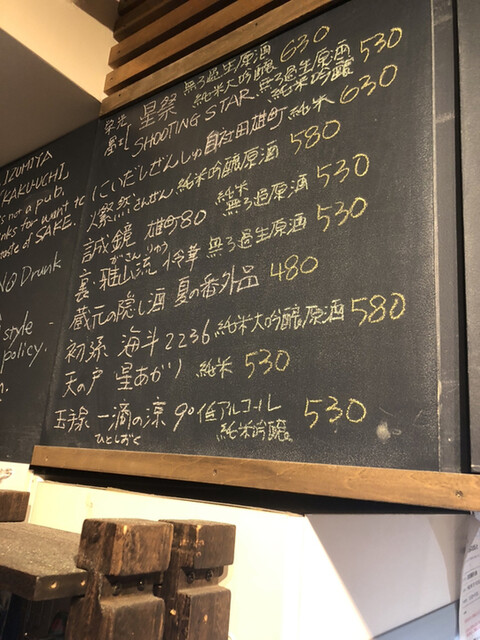 IZUMIYA
"KAKUUCHI"
s not a pub.
nks for want to
taste of SAKE.
NO Drunk
style
policy.
栄光冨士 星祭 無ろ過生原酒 純米大吟醸 630
SHOOTING STAR 無ろ過生原酒 純米吟醸 530
にいだしぜんしゅ 自社田雄町 純米 630
燦然 さんぜん 純米吟醸原酒 580
誠鏡 雄町80 純米 無ろ過原酒 530
がさんりゅう
裏・雅山流 怜華 無ろ過生原酒 530
蔵元の隠し酒 夏の番外品 480
初孫 海斗2236 純米大吟醸原酒 580
天の戸 星あかり 純米 530
玉手泉 一滴の涼 9°低アルコール 純米吟醸 530
ひとしずく